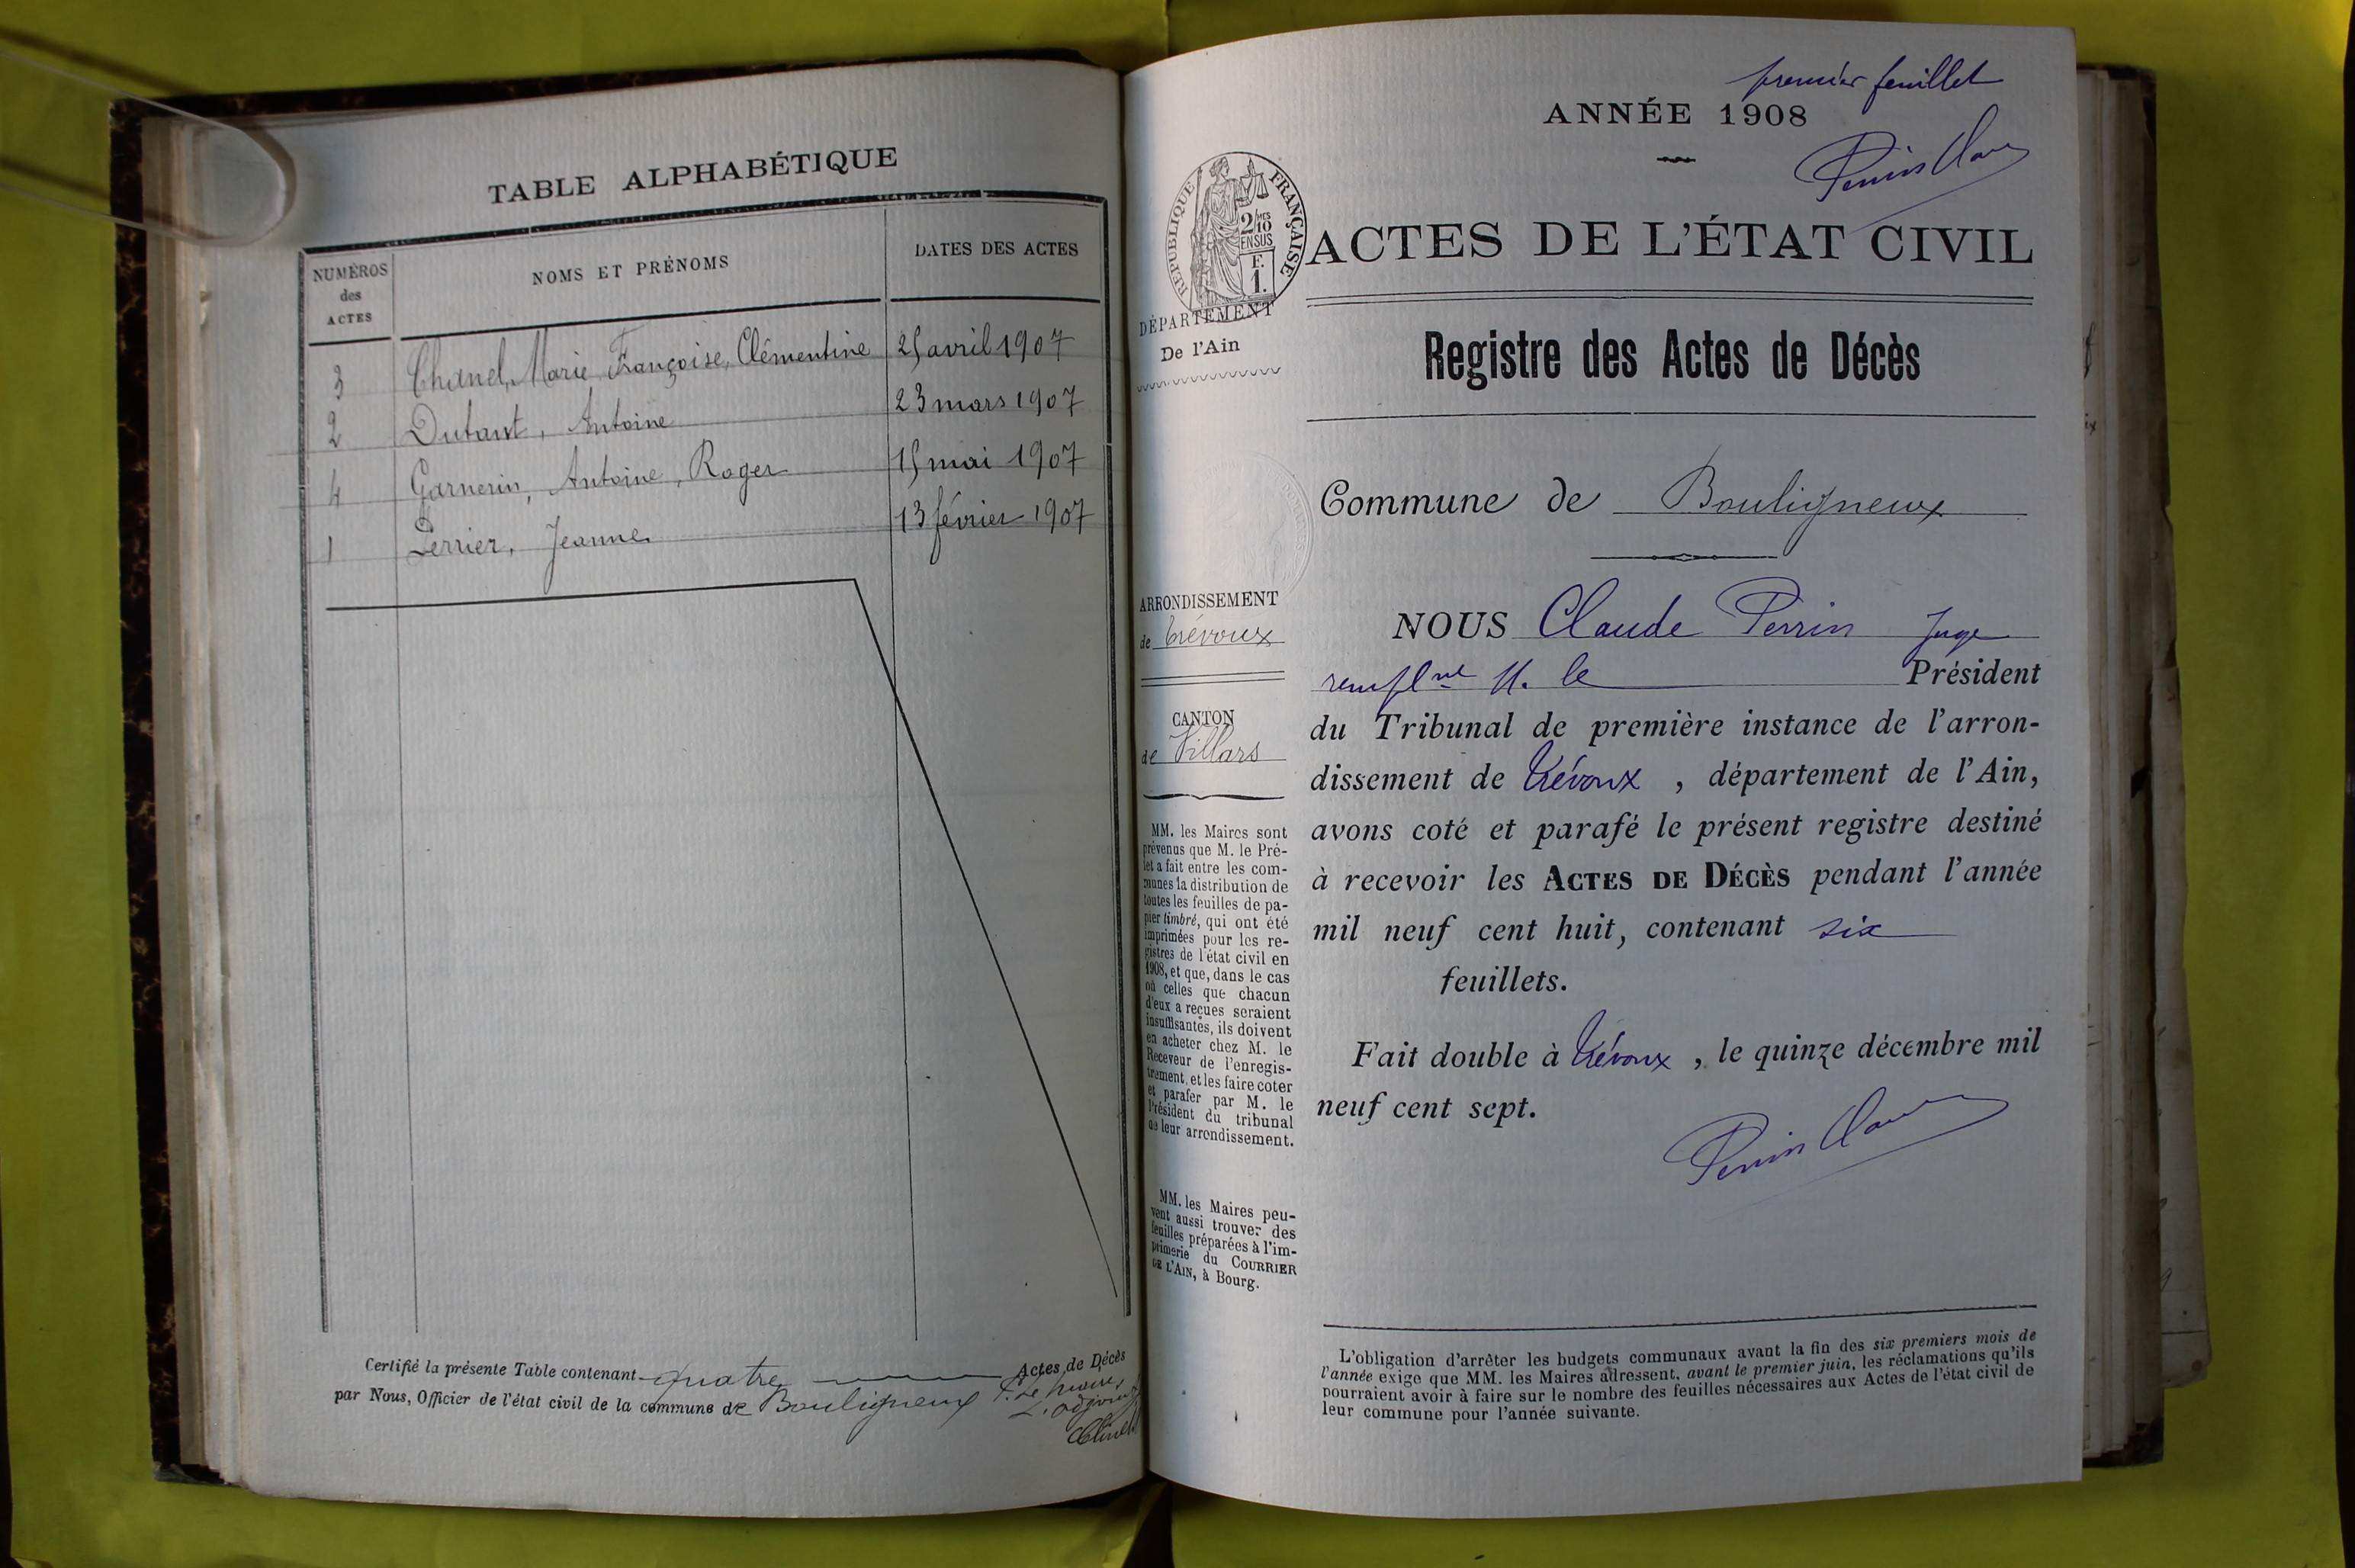 TABLE ALPHABÉTIQUE
NUMÉROS
des
ACTES
NOMS ET PRÉNOMS
DATES DES ACTES
3 Chanel, Marie, Françoise, Clémentine 25 avril 1907
2 Dutant, Antoine 23 mars 1907
4 Garnerin, Antoine, Roger 15 mai 1907
1 Perrier, Jeanne 13 février 1907
Certifié la présente Table contenant quatre Actes de Décès
par Nous, Officier de l'état civil de la commune de Bouligneux
P. Le maire,
L'adjoint
premier feuillet
ANNÉE 1908
Perrin Claude
RÉPUBLIQUE FRANÇAISE
2/10 MES
EN SUS
F.
1.
ACTES DE L'ÉTAT CIVIL
DÉPARTEMENT
De l'Ain
Registre des Actes de Décès
Commune de Bouligneux
ARRONDISSEMENT
de Trévoux
CANTON
de Villars
MM. les Maires sont
prévenus que M. le Pré-
fet a fait entre les com-
munes la distribution de
toutes les feuilles de pa-
pier timbré, qui ont été
imprimées pour les re-
gistres de l'état civil en
1908, et que, dans le cas
où celles que chacun
d'eux a reçues seraient
insuffisantes, ils doivent
en acheter chez M. le
Receveur de l'enregis-
trement, et les faire coter
et parafer par M. le
Président du tribunal
de leur arrondissement.
MM. les Maires peu-
vent aussi trouver des
feuilles préparées à l'im-
primerie du COURRIER
DE L'AIN, à Bourg.
NOUS Claude Perrin Juge
rempl.nt M. le Président
du Tribunal de première instance de l'arron-
dissement de Trévoux, département de l'Ain,
avons coté et parafé le présent registre destiné
à recevoir les ACTES DE DÉCÈS pendant l'année
mil neuf cent huit, contenant six
feuillets.
Fait double à Trévoux, le quinze décembre mil
neuf cent sept.
Perrin Claude
L'obligation d'arrêter les budgets communaux avant la fin des six premiers mois de
l'année exige que MM. les Maires adressent, avant le premier juin, les réclamations qu'ils
pourraient avoir à faire sur le nombre des feuilles nécessaires aux Actes de l'état civil de
leur commune pour l'année suivante.